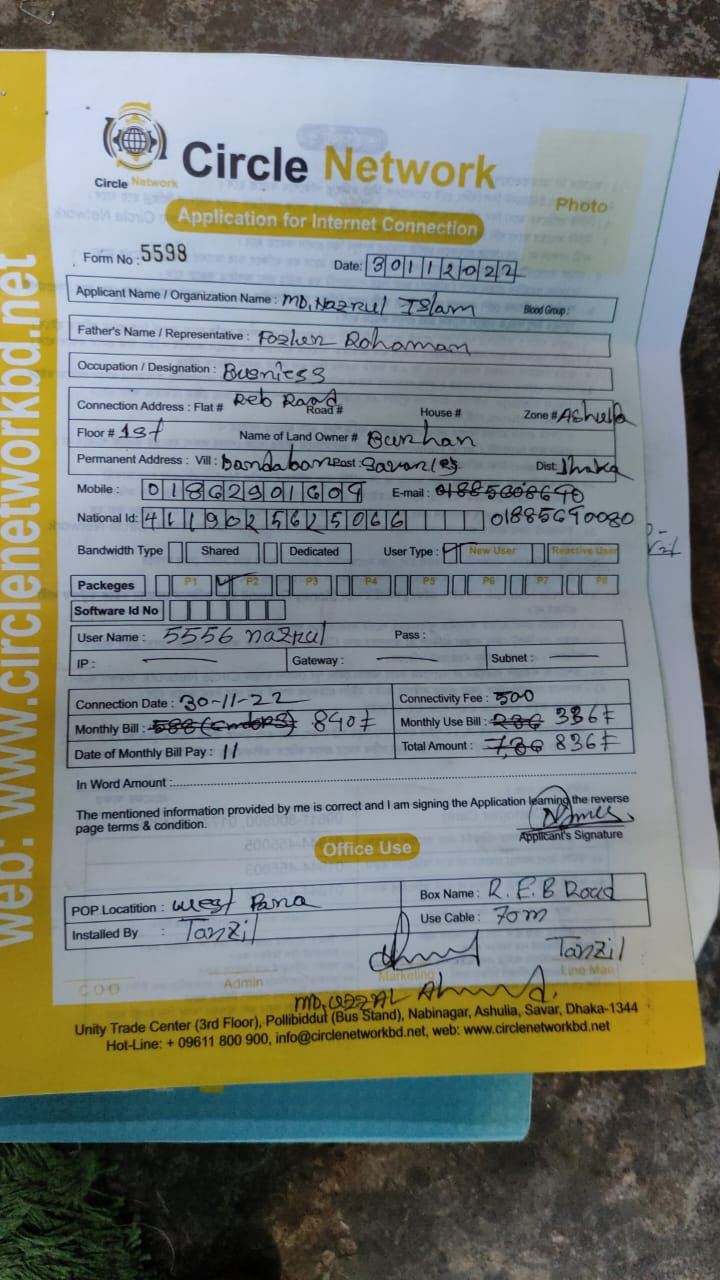 Circle Network
Circle Network
Photo
Application for Internet Connection
Form No : 5598
Date: 30112022
Applicant Name / Organization Name : MD. Nazrul Islam Blood Group :
Father's Name / Representative : Fozler Rohaman
Occupation / Designation : Busniess
Connection Address : Flat # Reb Road Road # House # Zone # Ashulia
Floor # 1st Name of Land Owner # Burhan
Permanent Address : Vill : Dandabar Post : Savar Dist: Dhaka
Mobile : 01862901609 E-mail : 01885608690
National Id: 4119025625066 01885690080
Bandwidth Type Shared Dedicated User Type : New User Reactive User
Packeges P1 P2 P3 P4 P5 P6 P7 P8
Software Id No
User Name : 5556 nazrul Pass :
IP : Gateway : Subnet :
Connection Date : 30-11-22 Connectivity Fee : 500
Monthly Bill : 840 Monthly Use Bill : 336
Date of Monthly Bill Pay : 11 Total Amount : 836
In Word Amount :
The mentioned information provided by me is correct and I am signing the Application learning the reverse
page terms & condition.
Applicant's Signature
Office Use
POP Locatition : West Para Box Name : R.E.B Road
Installed By : Tanzil Use Cable : 70m
Tanzil
COO Admin Marketing Line Man
MD. Ahmed
Unity Trade Center (3rd Floor), Pollibiddut (Bus Stand), Nabinagar, Ashulia, Savar, Dhaka-1344
Hot-Line: + 09611 800 900, info@circlenetworkbd.net, web: www.circlenetworkbd.net
web: www.circlenetworkbd.net